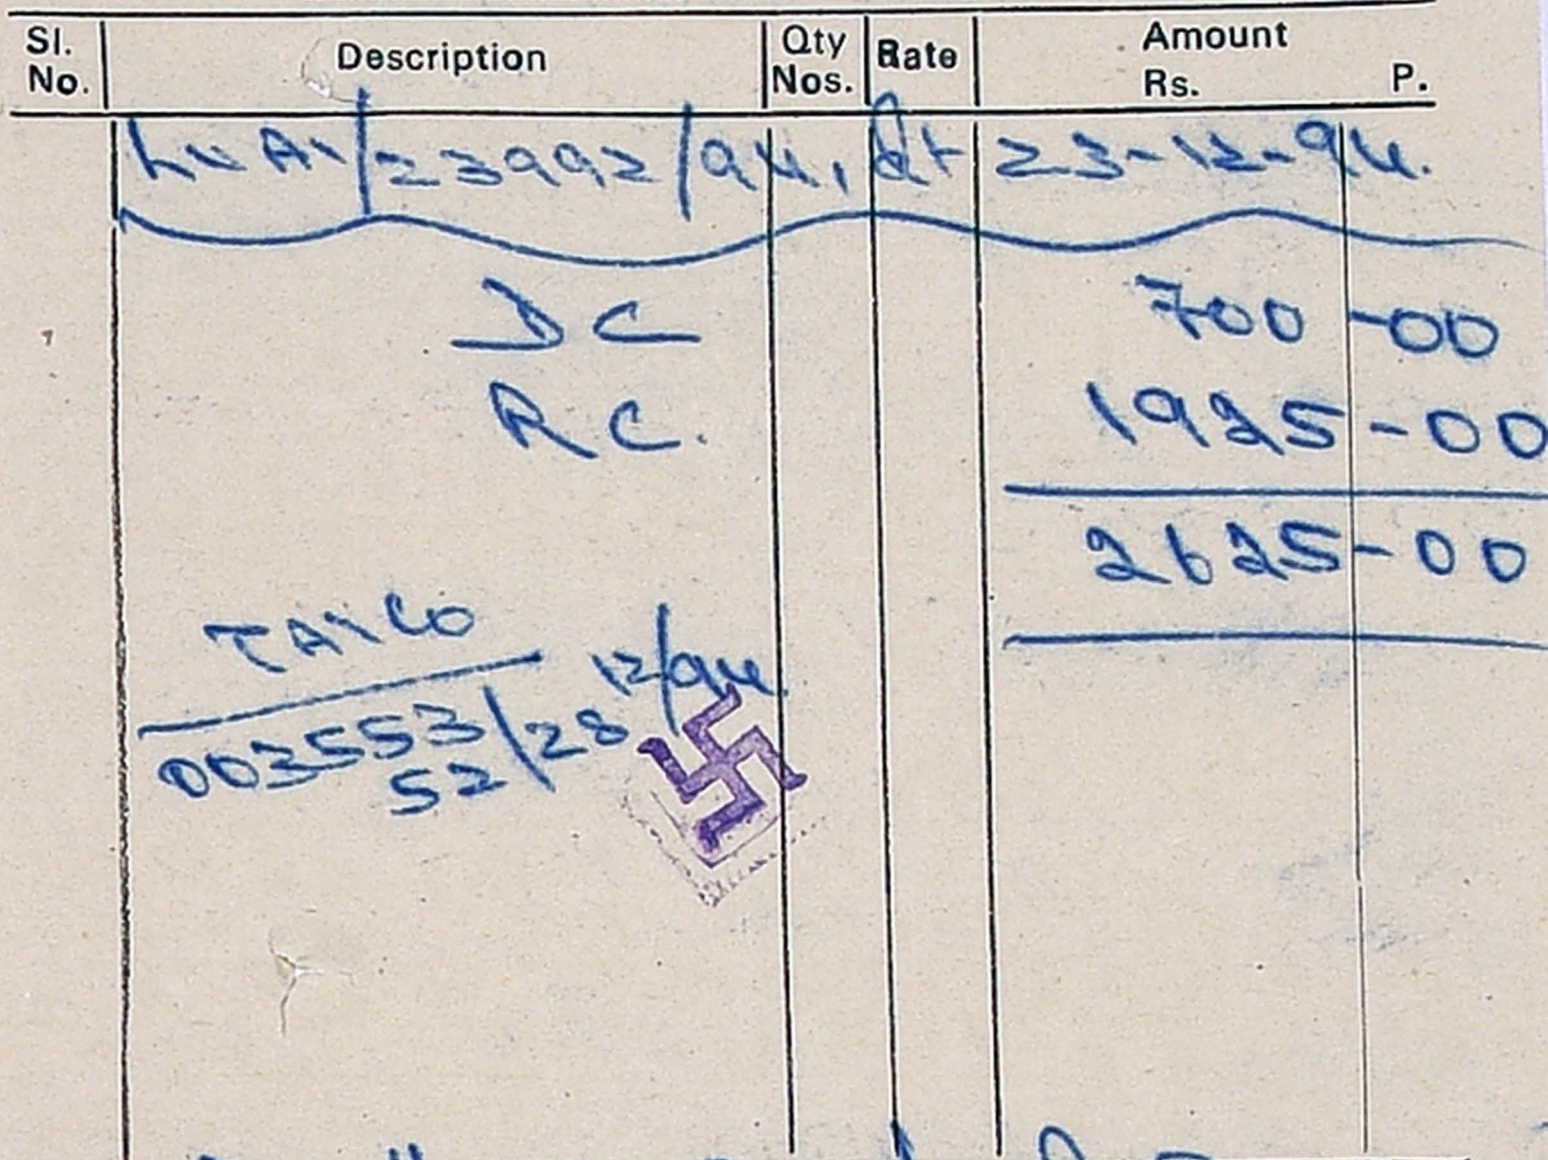 Sl. No. Description Qty Nos. Rate Amount Rs. P.
/23992/94, dt 23-12-94.
DC 700-00
RC. 1925-00
2625-00
003553/28 12/94
52